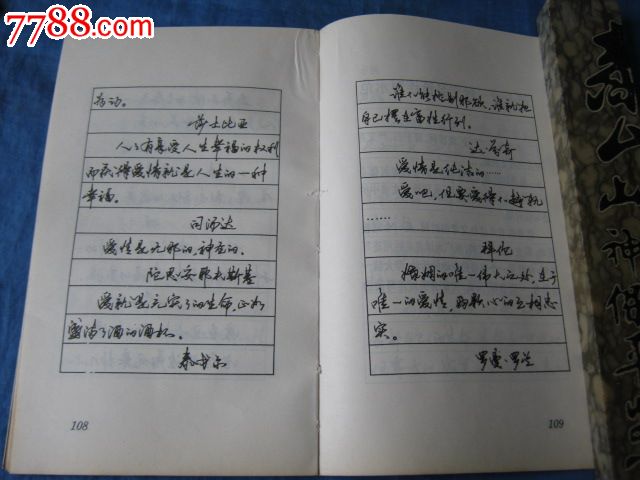 7788.com
劳动。
莎士比亚
人人有享受人生幸福的权利
而获得爱情就是人生的一种
幸福。
司汤达
爱情是无邪的,神圣的。
陀思妥耶夫斯基
爱就是充实了的生命,正如
盛满了酒的酒杯。
泰戈尔
108
谁不能抵制邪欲,谁就把
自己摆在畜牲行列。
达·芬奇
爱情是纯洁的……
爱吧,但要爱得
……
拜伦
婚姻的唯一伟大之处,在于
唯一的爱情,两颗心的互相忠
实。
罗曼·罗兰
109
公山神